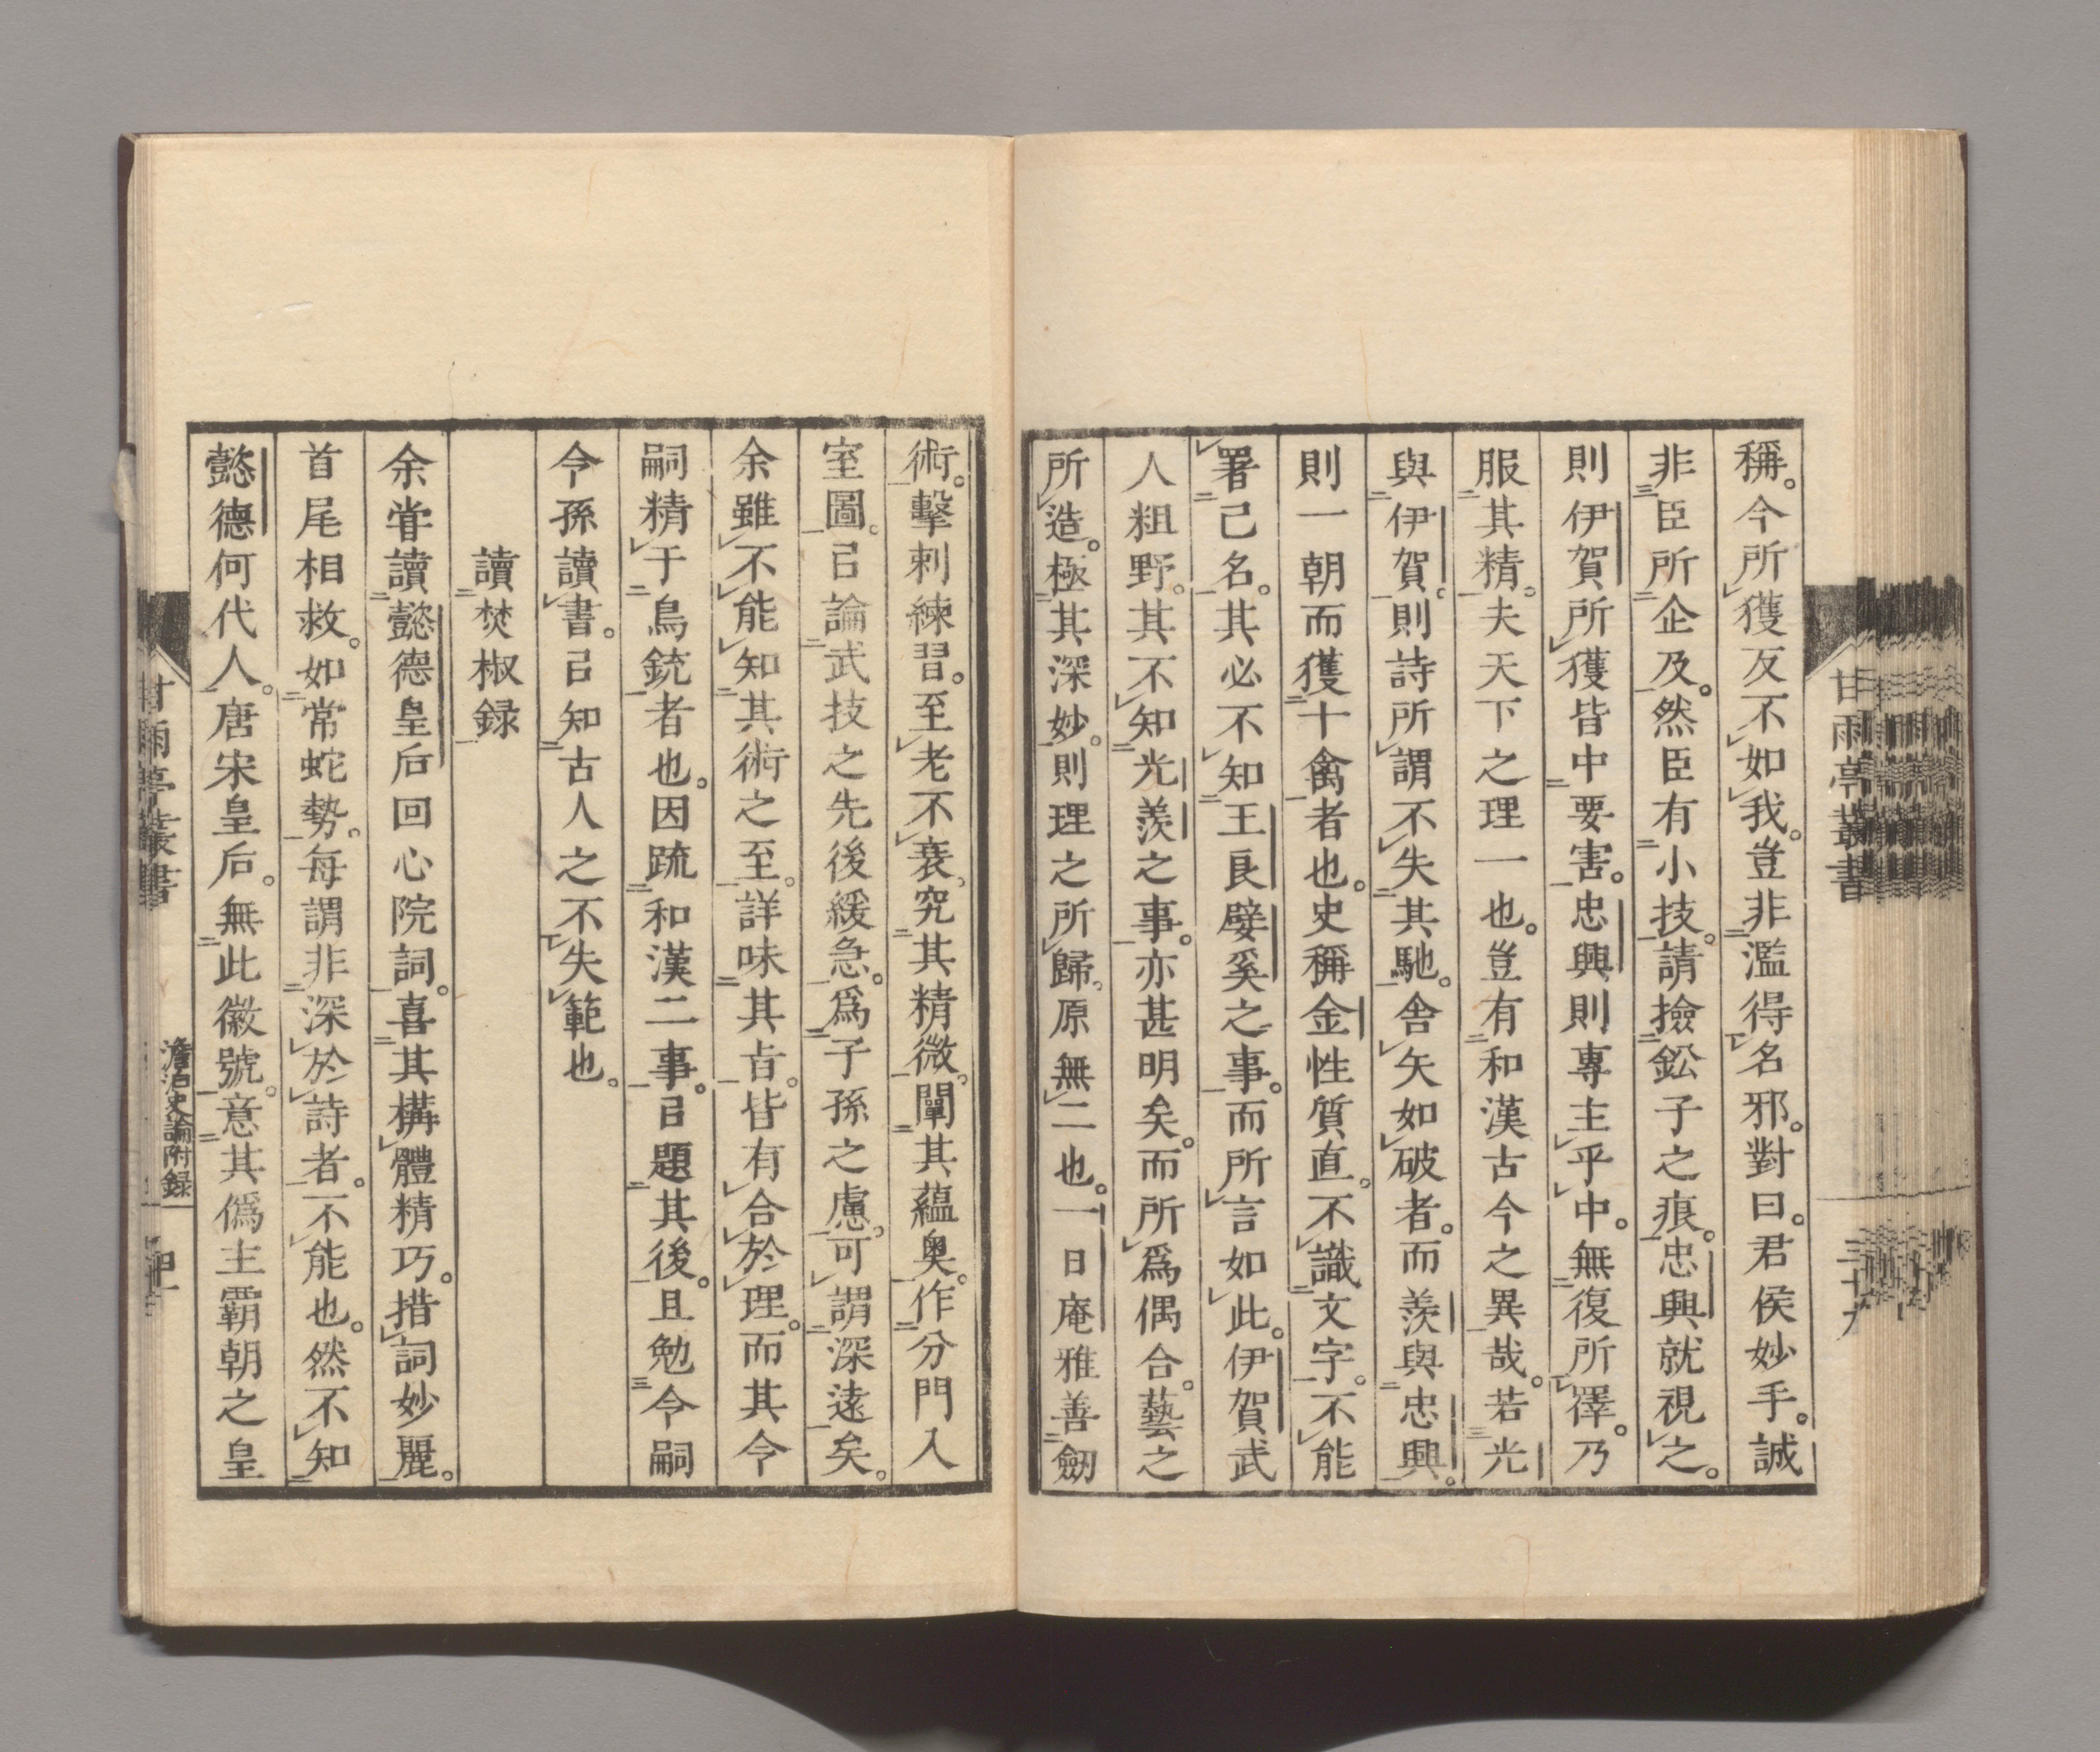 稱。今所獲反不如我。豈非濫得名邪。對曰。君侯妙手。誠
非臣所企及。然臣有小技。請撿鈆子之痕。忠興就視之。
則伊賀所獲皆中要害。忠興則專主乎中。無復所擇。乃
服其精。夫天下之理一也。豈有和漢古今之異哉。若光
與伊賀。則詩所謂不失其馳。舎矢如破者。而羨與忠興。
則一朝而獲十禽者也。史稱金性質直。不識文字。不能
署己名。其必不知王良嬖奚之事。而所言如此。伊賀武
人粗野。其不知光羨之事。亦甚明矣。而所爲偶合。藝之
所造。極其深妙。則理之所歸。原無二也。一日庵雅善劒
術。擊刺練習。至老不衰。究其精微。闡其蘊奥。作分門入
室圖。㠯論武技之先後緩急。爲子孫之慮。可謂深遠矣。
余雖不能知其術之至。詳味其㫖。皆有合於理。而其令
嗣精于鳥銃者也。因疏和漢二事。㠯題其後。且勉令嗣
令孫讀書。㠯知古人之不失範也。
讀焚椒録
余甞讀懿德皇后回心院詞。喜其構體精巧。措詞妙麗。
首尾相救。如常蛇勢。每謂非深於詩者。不能也。然不知
懿德何代人。唐宋皇后。無此徽號。意其僞主霸朝之皇
甘雨亭叢書
三十九
甘雨亭叢書
澹泊史論附録